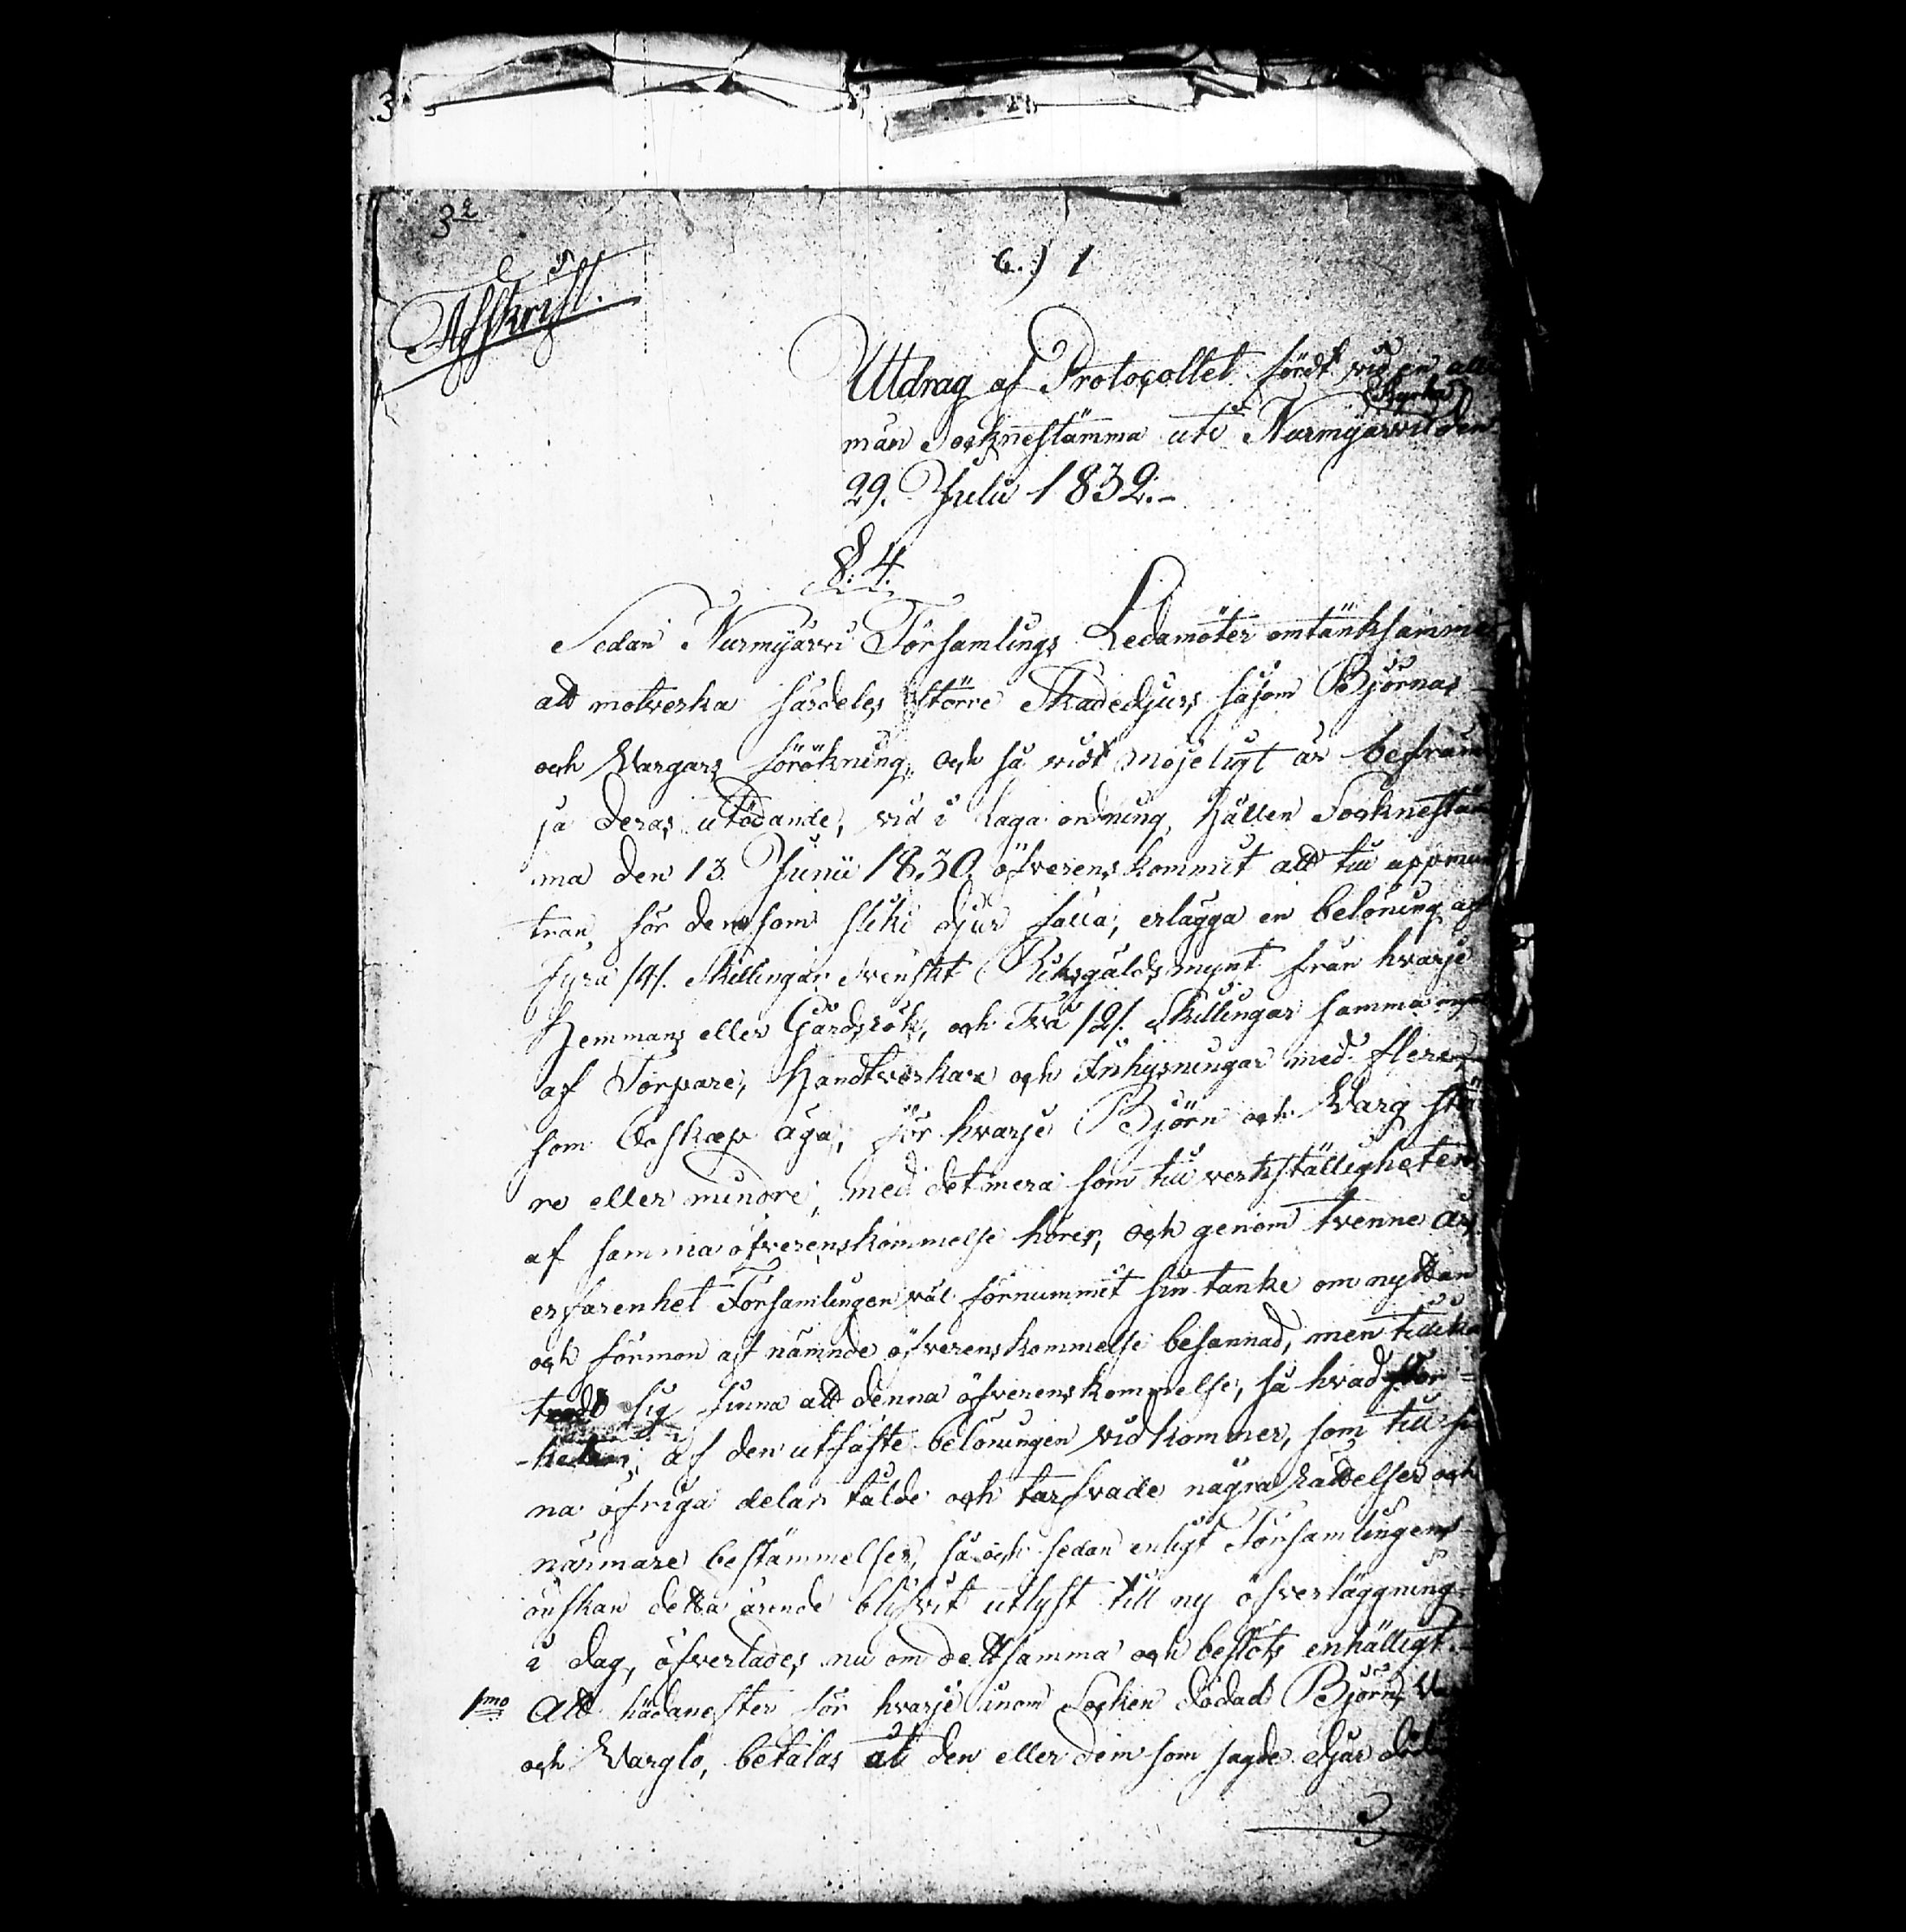 3
3
Afskrift.
c.) 1
Utdrag af Protocollet fördt vid en all
Kyrka
män Socknestämma uti Nurmijärvi den
29. Julii 1832.-
§. 4.
Sedan Nurmijärvi Församlings Ledamöter omtänksamme
att motverka särdeles större Skadedjurs såsom Björnas
och Vargars förökning, och så vidt möjeligt är befräm
ja deras utödande, vid i laga ordning hållen Socknestäm
ma den 13 Junii 1830. öfverenskommit att till uppmun
tran för dem som slike djur fälla, erlägga en belöning af
fyra /4/. Skillingar Svenskt Riksgäldsmynt från hvarje
Hemmans eller Gårdsrök, och Två /2/. Skillingar samma mynt
af Torpare, Handtverkare och Inhysningar med flere,
som Boskap äga, för hvarje Björn och Varg stö
re eller mindre, med det mera som till verkställigheten
af samma öfverenskommelse hörer, och genom tvenne års
erfarenhet Församlingen väl förnummit sin tanke om nyttan
och förmon af nämnde öfverenskommelse besannad, men tillika
trodt sig finna att denna öfverenskommelse, så hvad stor-
-leken af den utfäste belöningen vidkommer, som till si
na öfriga delar tålde och tarfvade några rättelser och
närmare bestämmelser, så och sedan enligt Församlingens
önskan detta ärende blifvit utlyst till ny öfverläggning
i dag, öfverlades nu om dettsamma och beslöts enhälligt.
1mo Att hädanefter för hvarje inom Socken dödad Björn, Va
och Varglo, betalas åt den eller dem som sagde djur död